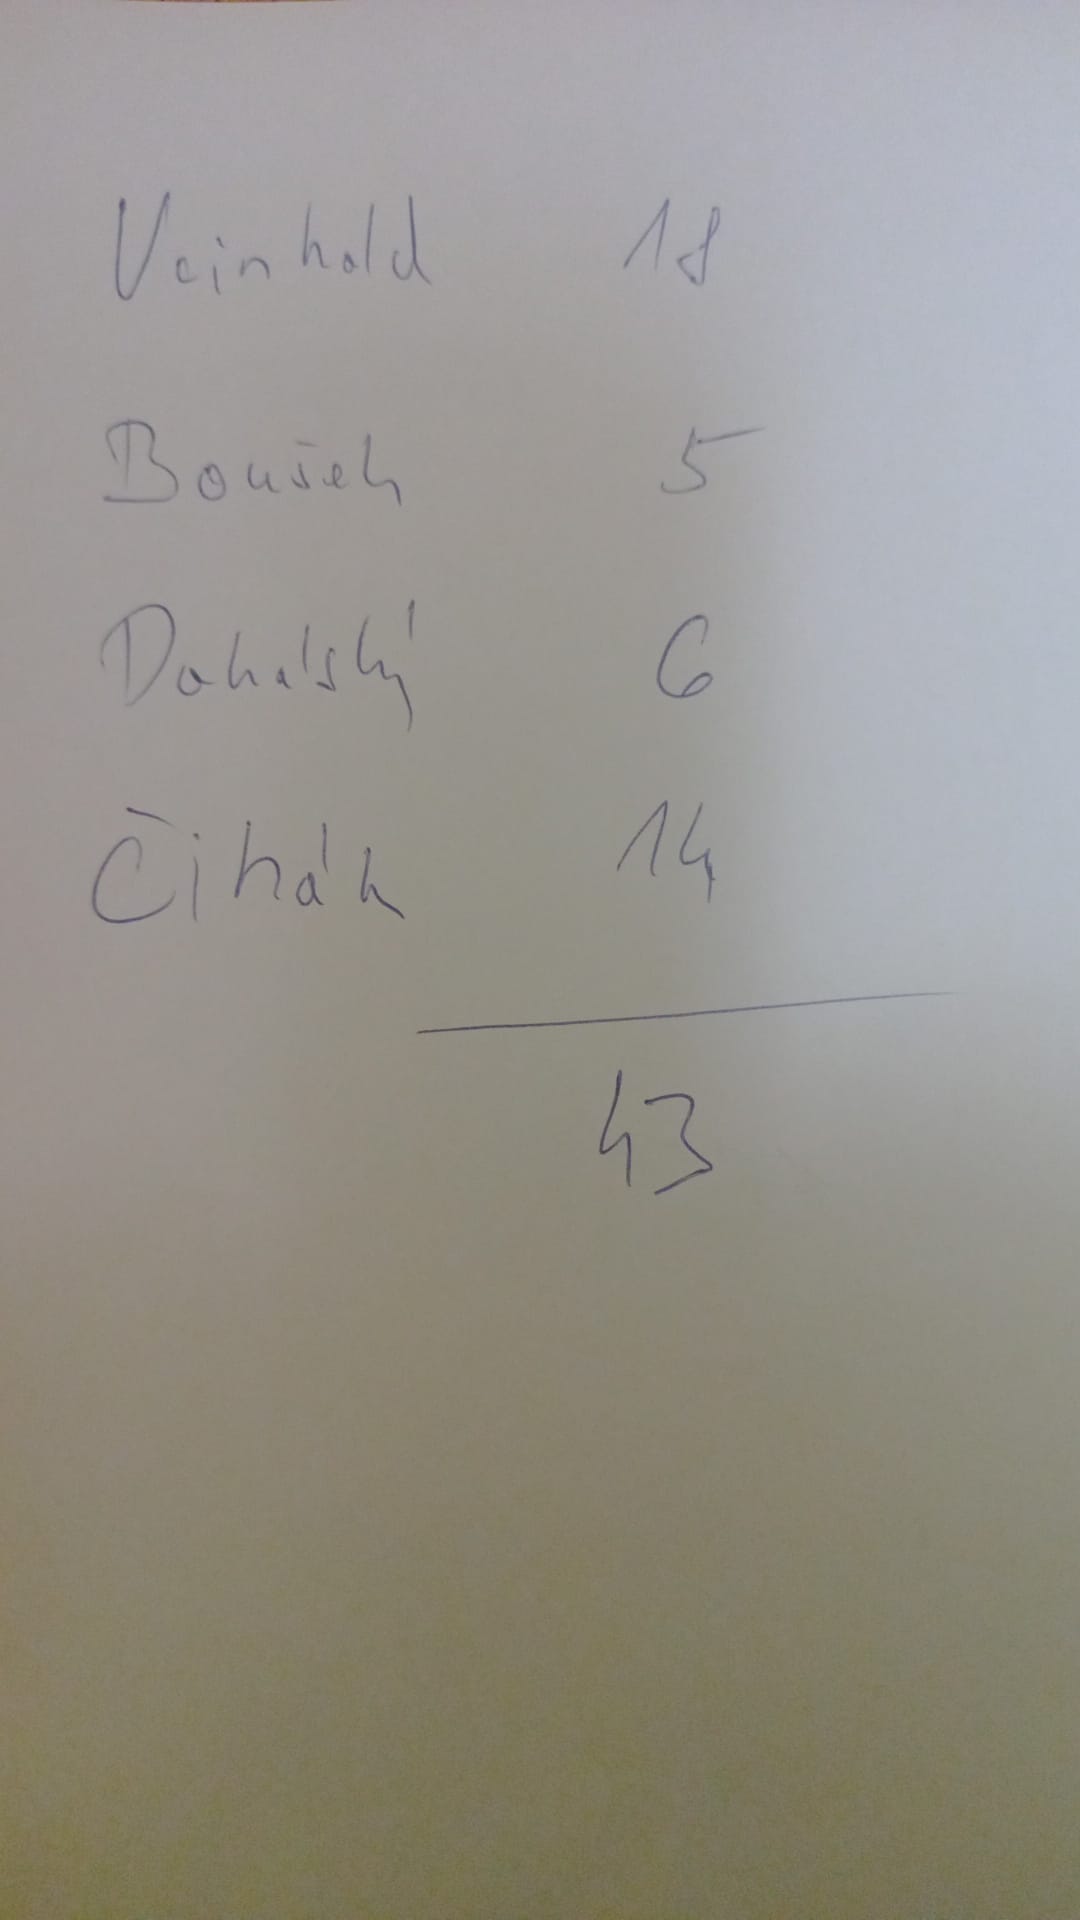 Veinhold 18
Boušek 5
Dohalský 6
Čihák 14
43